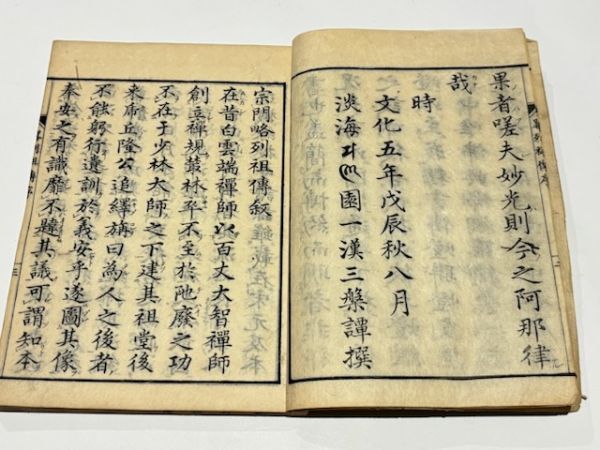 果者嗟夫妙光則今之阿那律
哉
時
文化五年戊辰秋八月
淡海園一漢三槃譚撰
宗門略列祖傳叙
在昔白雲端禪師以百丈大智禪師
創立禪規叢林卒不至於陁廢之功
不在于少林大師之下建其祖堂後
来虎丘隆公追繹稱曰為人之後者
不能躬行遺訓於義安乎遂圖其像
奉安之有識靡不韙其議可謂知本